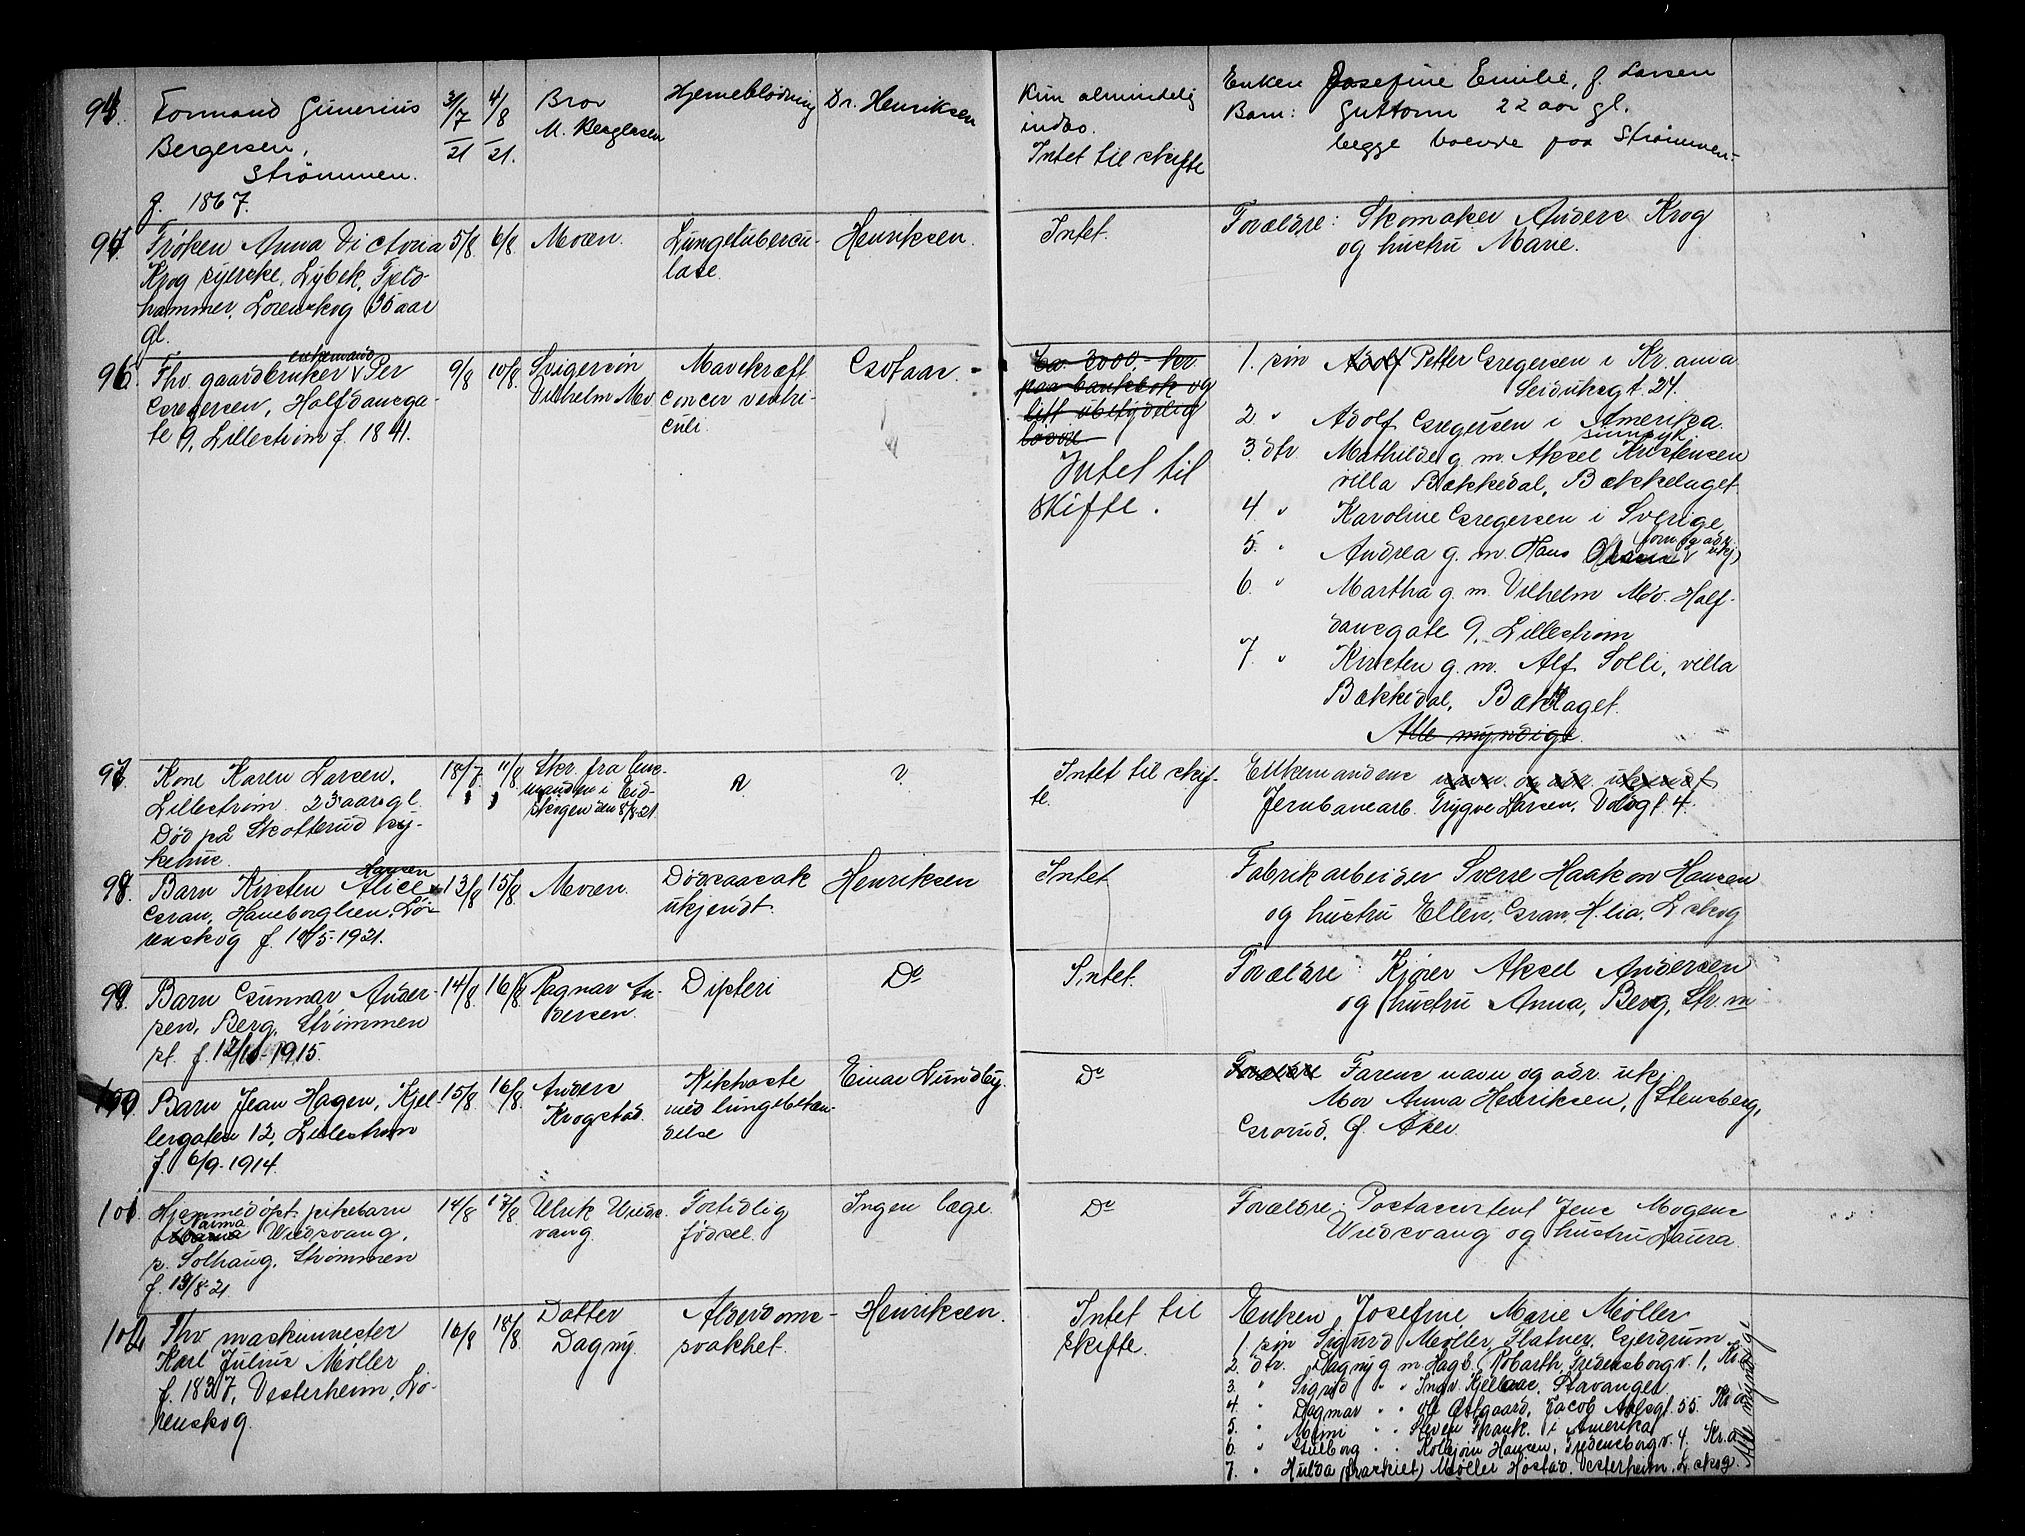 94. Formand Gunerius
Bergersen,
Strømmen.
g. 1867.
31/7 21
4/8 21.
Bror
M. Bergersen
Hjerneblødning
Dr. Henriksen
Kun almindelig
indbo.
Intet til skifte
Enken Josefine Emilie, f. Larsen
Barn: Guttorm 22 aar gl.
begge boende paa Strømmen.
Frøken Anna Victoria
Krog syerske, Lybek, Fjeld-
hammer, Lørenskog 35 aar
gl.
5/8
6/8
Moren.
Lungetubercu-
lose.
Henriksen.
Intet.
Forældre: Skomaker Anders Krog
og hustru Marie.
96. Fhv. gaardbruker enkemand Per
Gregersen, Halfdansga-
te 9, Lillestrøm f. 1841.
9/8
10/8
Svigersøn
Vilhelm Mo
Mavekræft
cancer ventri-
culi.
Gotaas.
Ca. 2000,- kr.
paa bankbok og
litt ubetydelig
løsøre
Intet til
skifte.
1. søn Adolf Petter Gregersen i Kr.ania
Seiduksgt. 24.
2 " Adolf Gregersen i Amerika.
sinnsyk.
3. dtr. Mathilde g. m. Aksel Kristensen
villa Bækkedal, Bækkelaget.
4 " Karoline Gregersen i Sverige
5. " Andrea g. m. Hans Olsen
6. " Martha g. m. Vilhelm Mo. Half-
dansgate 9, Lillestrøm
7. " Kirsten g. m. Alf Solli, villa
Bækkedal, Bæklaget.
Alle myndige.
97. Kone Karen Larsen,
Lillestrøm. 23 aar gl.
Død på Skotterud sy-
kehus.
18/7
11/8
Skr. fra lens-
manden i Eid-
skogen den 8/8-21
?
?
Intet til skif-
te.
Enkemandens navn og adr. ukjendt
Jernbanearb. Trygve Larsen, Voldgt. 4.
98. Barn Kirsten Alice Hansen
Gran, Haneborglien, Lø-
renskog f. 10/5-1921.
13/8
15/8
Moren.
Dødsaarsak
ukjendt.
Henriksen
Intet
Fabrikarbeider Sverre Haakon Hansen
og hustru Ellen, Gran, H.lia, L.skog
99. Barn Gunnar Ander-
sen, Berg, Strømmen
st. f. 12/10-1915.
14/8
16/8
Ragnar An-
dersen.
Difteri
Do
Intet.
Forældre: Kjører Aksel Andersen
og hustru Anna, Berg, Str.m
100 Barn Jean Hagen, Kjel-
lergaten 12, Lillestrøm
f. 6/9-1914.
15/8
16/8
Anders
Krogstad.
Kikhoste
med lungebetæn-
delse
Einar Lundby.
Do
Forældre Farens navn og adr. ukj.
Mor Anna Henriksen, Stensberg,
Grorud, Ø. Aker.
101. Hjemmedøpt pikebarn
Norma Uredsvang,
p. Solhaug, Strømmen
f. 13/8-21.
14/8
17/8
Ulrik Ureds-
vang.
Fortidlig
fødsel.
Ingen læge.
Do
Forældre: Postassistent Jens Mogens
Uredsvang og hustru Laura.
102 Fhv maskinmester
Karl Julius Møller
f. 1837, Vesterheim, Lø-
renskog.
16/8
18/8
Datter
Dagny.
Alderdoms-
svakhet.
Henriksen.
Intet til
skifte.
Enken Josefine Marie Møller
1. søn Sigurd Møller, Flatner, Gjerdrum
2. dtr. Dagny g m Hagb. Robarth, Fredensborgv. 1, Kr.a
3. " Sigrid " " Ingv. Kjellaas, Stavanger.
4. " Dagmar " " Ole Østgaard, Jacob Aalsgt. 55. Kr.a
5. " Mimi " " Steven Frank. i Amerika
6. " Valborg " " Kolbjørn Hansen, Fredensborgv. 4. Kr.a
7. " Hulda (frarskilt) Møller Hostad, Vesterheim, L.skog.
Alle myndige